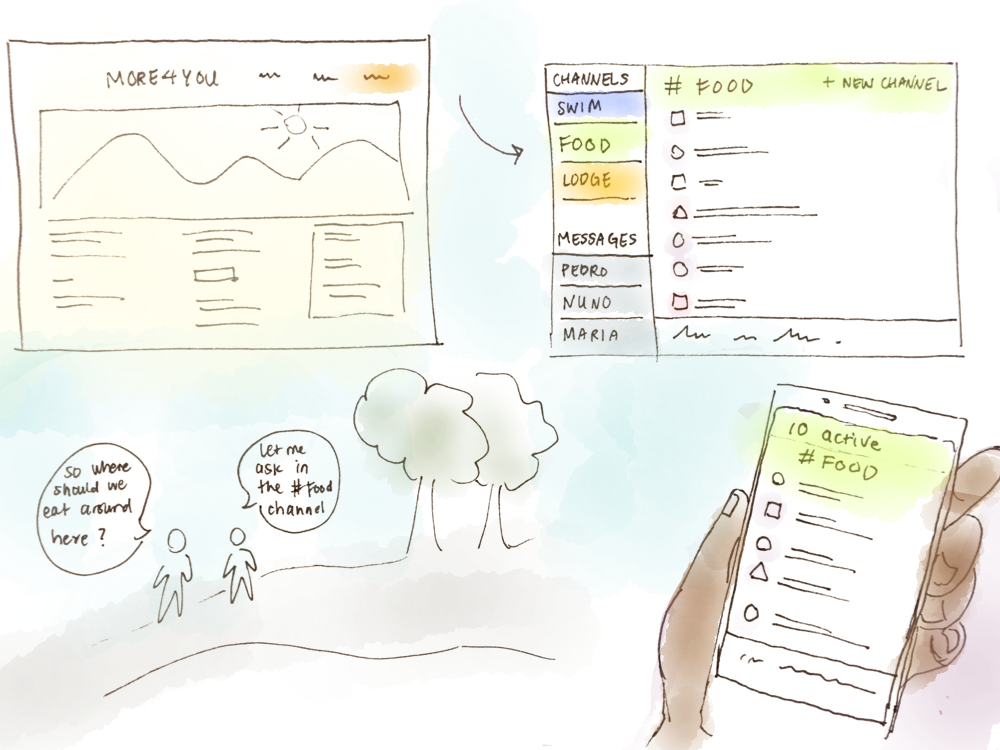 MORE4YOU
CHANNELS
SWIM
FOOD
LODGE
MESSAGES
PEDRO
NUNO
MARIA
# FOOD
+ NEW CHANNEL
So where
should we
eat around
here ?
Let me
ask in
the #Food
channel
10 active
#FOOD